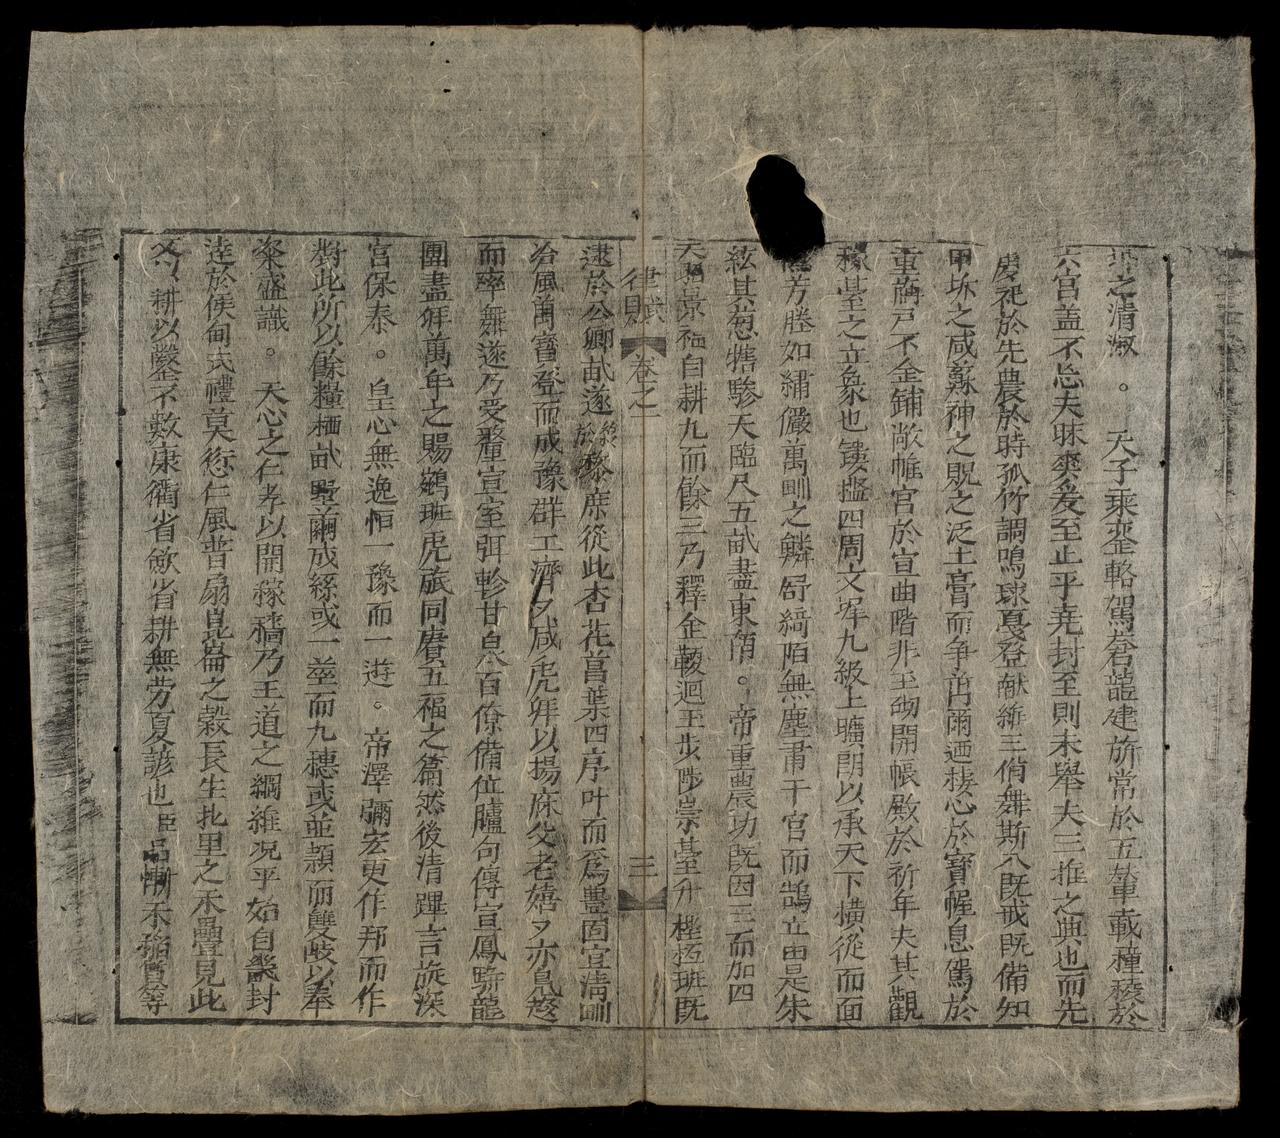 之清淑。天子乘玉輅駕蒼龍建旂常於五輦載種稜於
六宮盖不忘夫昧爽爰至止乎堯封至則未舉夫三推之典也而先
慶祀於先農於時孤竹調鳴球戞登献維三佾舞斯八既戒既備知
甲坼之咸蘇神之貺之泛土膏而争茁爾迺棲心於寳幄息駕於
重旃戸不金鋪敞帷宮於宣曲階非玉砌開帳殿於祈年夫其觀
稼臺之立象也鏤檻四周文墀九級上曠朗以承天下横從而面
芳塍如繡儼萬𤰝之鱗舒綺陌無塵肅千官而鵠立由是朱
絃其葱犗駿天臨尺五畝盡東南。帝重農功既因三而加四
天錫景福自耕九而餘三乃釋金𩌏迴玉步陟崇基升極位班既
律賦 卷之 三
逮於公卿畝遂終於黎庶從此杏花菖葉四序叶而爲豐茵宣清𤰝
冶風萬寳登而成豫群工濟又咸虎拜以揚庥父老嬉又亦鳧趨
而率舞遂乃受釐宣室弭軫甘泉百僚備位臚句傳宣鳳騈龍
團盡拜萬年之賜鵷班虎旅同賡五福之篇然後清蹕言旋深
宮保泰。皇心無逸恒一豫而一遊。帝澤彌宏更作邦而作
對此所以餘糧栖畝野繭成絲或一莖而九穗或並穎而雙歧以奉
粢盛識。天心之仁孝以開稼穡乃王道之綱維况乎始自畿封
逹於侯甸弌禮莫愆仁風普扇崑崙之榖長生北里之禾疊見此
耕以鑿不數康衢省歛省耕無勞夏諺也臣 品 禾稲實等